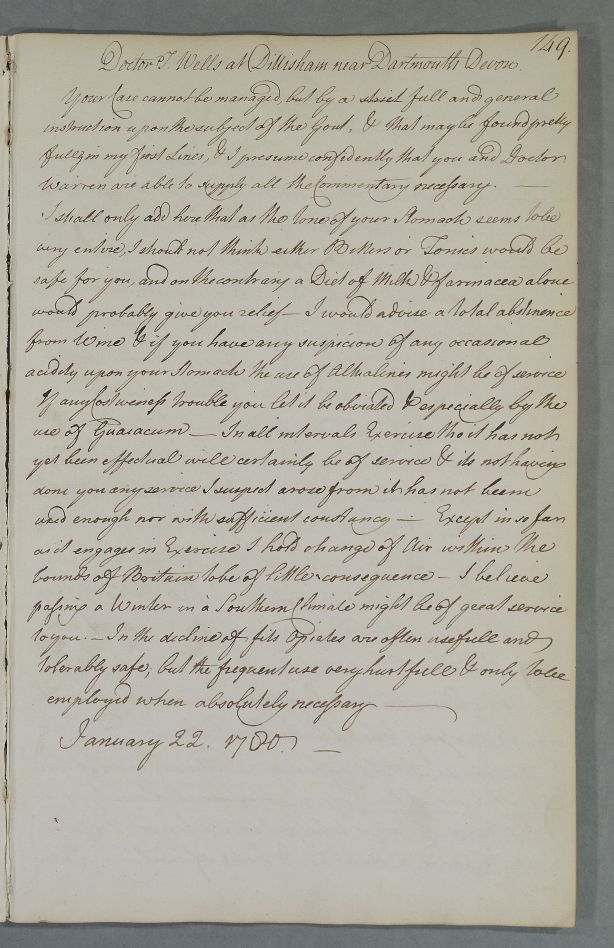 149.
Doctor T. Wells at Dittisham near Dartmouth Devon.
Your Case cannot be managed, but by a strict full and general
instruction upon the subject of the Gout, & that may be found pretty
fully in my first Lines, & I presume confidently that you and Doctor
Warren are able to supply all the Commentary necessary. —
I shall only add here that as the tone of your Stomach seems to be
very entire, I should not think either Bitters or Tonics would be
safe for you, and on the contrary a Diet of Milk & farinacea alone
would probably give you relief — I would advise a total abstinence
from Wine & if you have any suspicion of any occasional
acidity upon your Stomach the use of Alkalines might be of service
If any Costiveness trouble you let it be obviated & especially by the
use of Guaiacum — In all intervals Exercise tho it has not
yet been effectual will certainly be of service & its not having
done you any service I suspect arose from it has not been
used enough nor with sufficient constancy — Except in so far
as it engages in Exercise I hold change of Air within the
bounds of Britain to be of little consequence — I believe
passing a Winter in a Southern Climate might be of great service
to you. — In the decline of fits Opiates are often usefull and
tolerably safe, but the frequent use very hurtfull & only to be
employed when absolutely necessary —
January 22. 1780. —